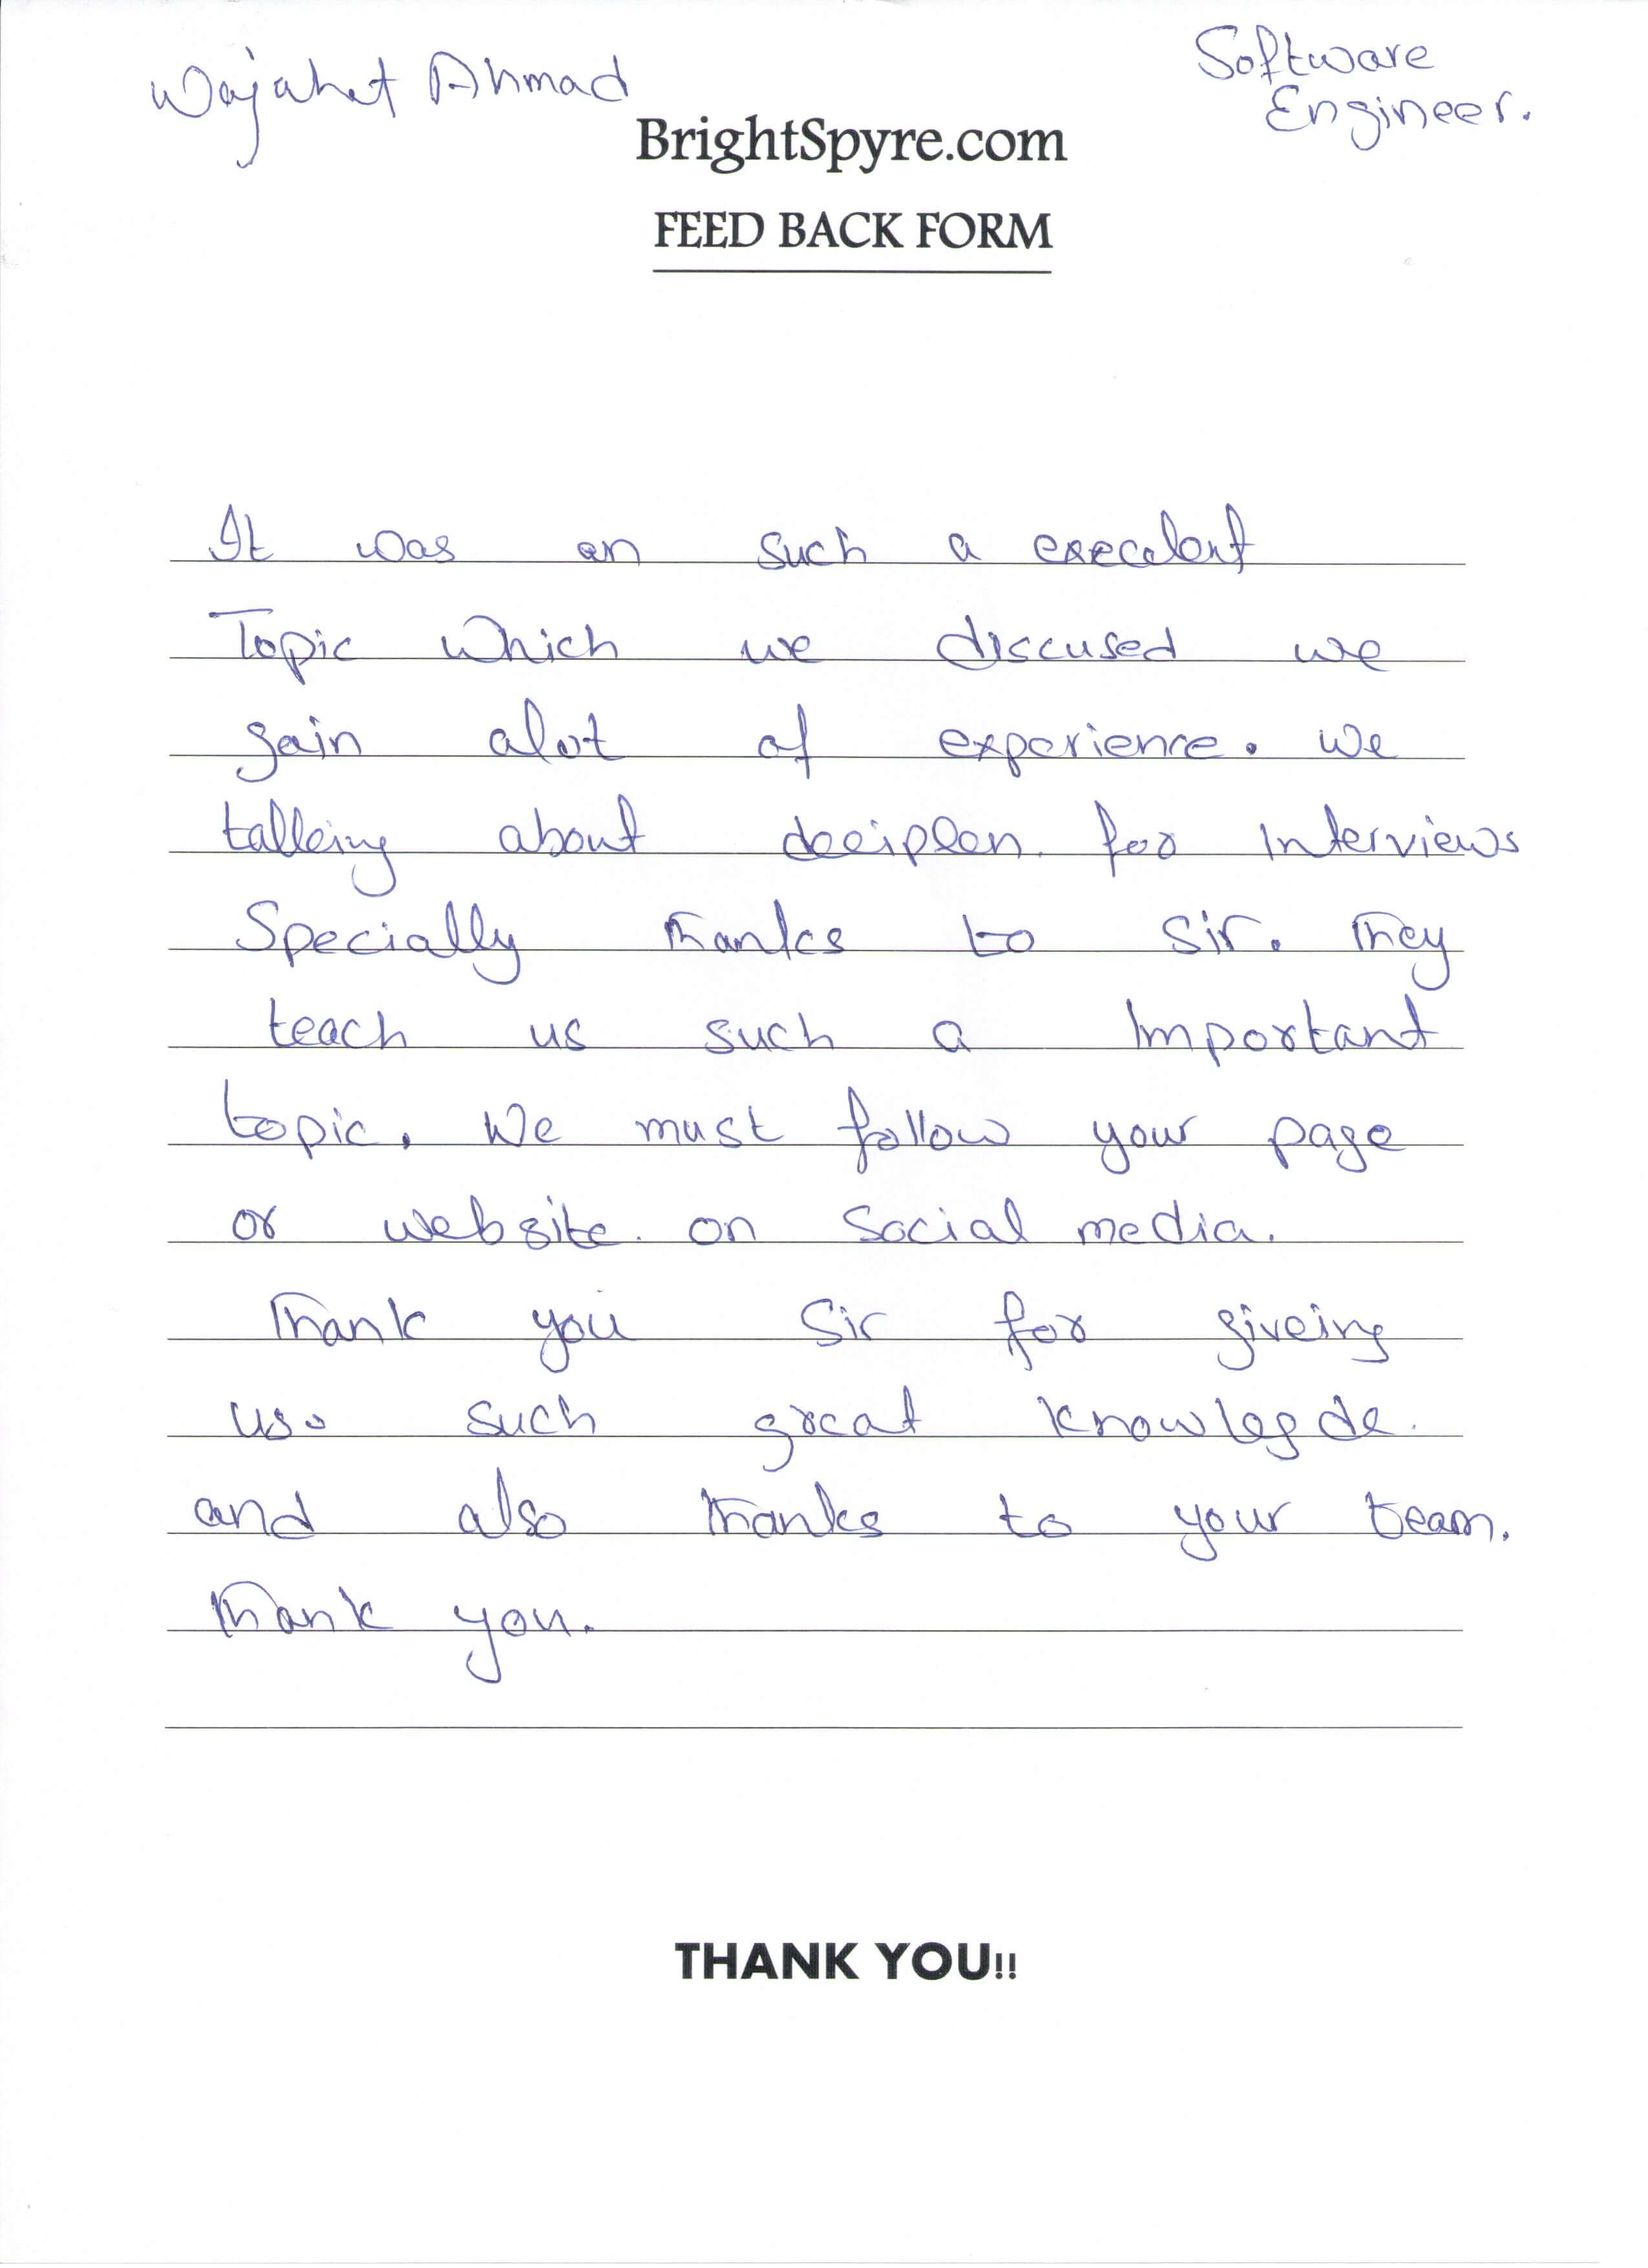 Wajahat Ahmad
Software
Engineer.
BrightSpyre.com
FEED BACK FORM
It was an such a execelent
Topic which we discused we
gain alot of experience. we
talking about deciplen. for Interviews
Specially thanks to Sir. They
teach us such a Important
topic. We must follow your page
or website. on Social media.
Thank you Sir for giveing
us. such great knowlegde.
and also thanks to your team.
Thank you.
THANK YOU!!